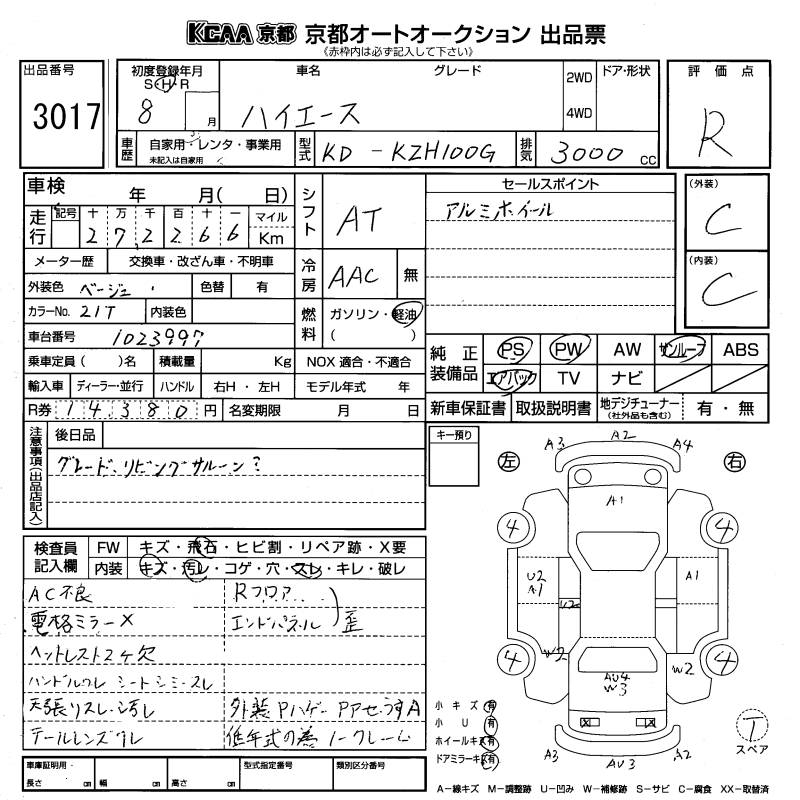 KCAA 京都 京都オートオークション 出品票
《赤枠内は必ず記入して下さい》
出品番号 3017
初度登録年月 S・H・R 8 月
車名 ハイエース
グレード
2WD 4WD
ドア・形状
評価点 R
車歴 自家用・レンタ・事業用 未記入は自家用
型式 KD-KZH100G
排気 3000 CC
車検 年 月( 日)
シフト AT
セールスポイント
アルミホイール
(外装) C
(内装) C
走行 記号 十 万 千 百 十 一 マイル Km
2 7 2 2 6 6
冷房 AAC 無
メーター歴 交換車・改ざん車・不明車
外装色 ベージュ 色替 有
カラーNo. 21T 内装色
燃料 ガソリン・軽油 ( )
車台番号 1023997
乗車定員( )名 積載量 Kg NOX 適合・不適合
純正装備品 PS PW AW サンルーフ ABS
エアバック TV ナビ
輸入車 ディーラー・並行 ハンドル 右H・左H モデル年式 年
R券 14380円 名変期限 月 日
新車保証書 取扱説明書 地デジチューナー (社外品も含む) 有・無
注意事項(出品店記入)
後日品
グレード、リビングサルーン?
キー預り
左 右
A3 A2 A4
A1
4 4
U2 A1
A1
U2
4 4
W2
W2
AU4
W3
A3 AU3 A2
検査員記入欄
FW キズ・飛石・ヒビ割・リペア跡・X要
内装 キズ・汚レ・コゲ・穴・スレ・キレ・破レ
AC不良 Rフロア
電格ミラーX エンドパネル 歪
ヘットレスト2ヶ欠
ハンドルワレ シートシミ・スレ
天張リスレ・汚レ 外装Pハゲ・Pアセ・ウスA
テールレンズワレ 低年式の為ノークレーム
小キズ 有
小U 有
ホイールキズ 有
ドアミラーキズ 有
T
スペア
車庫証明用・長さ cm 幅 cm 高さ cm 型式指定番号 類別区分番号
A−線キズ M−調整跡 U−凹み W−補修跡 S−サビ C−腐食 XX−取替済